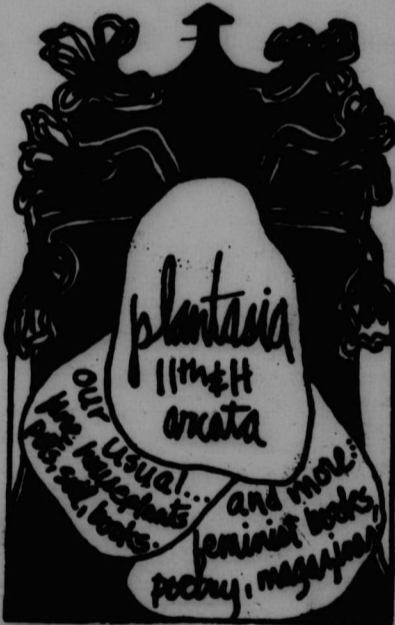 plantasia
11th & H
arcata
our usual...
fine houseplants
pots, soil, books.
and more:
feminist books,
poetry, magazines